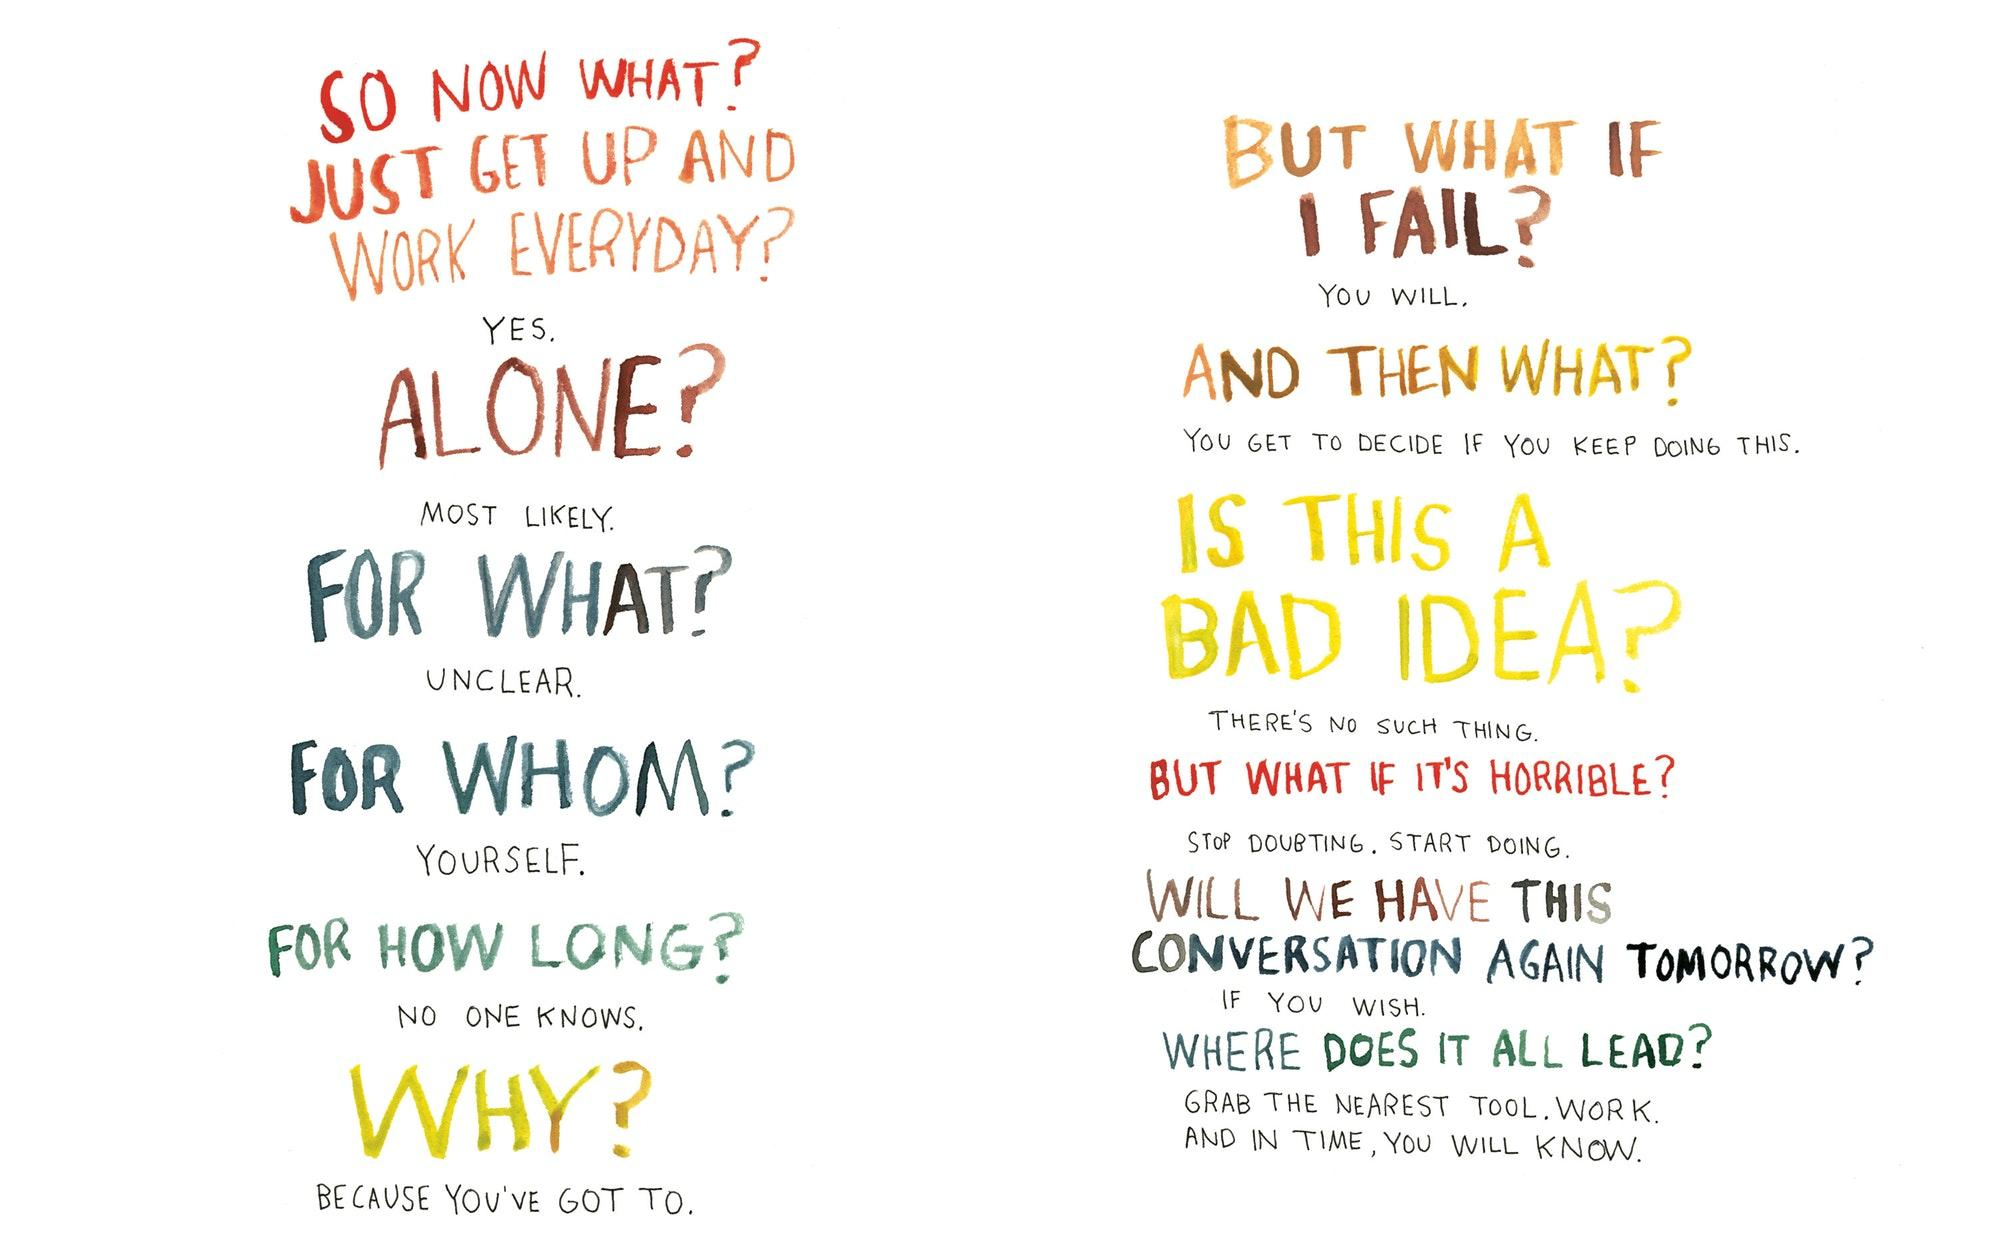 SO NOW WHAT?
JUST GET UP AND
WORK EVERYDAY?
YES.
ALONE?
MOST LIKELY.
FOR WHAT?
UNCLEAR.
FOR WHOM?
YOURSELF.
FOR HOW LONG?
NO ONE KNOWS.
WHY?
BECAUSE YOU'VE GOT TO.
BUT WHAT IF
I FAIL?
YOU WILL.
AND THEN WHAT?
YOU GET TO DECIDE IF YOU KEEP DOING THIS.
IS THIS A
BAD IDEA?
THERE'S NO SUCH THING.
BUT WHAT IF IT'S HORRIBLE?
STOP DOUBTING. START DOING.
WILL WE HAVE THIS
CONVERSATION AGAIN TOMORROW?
IF YOU WISH.
WHERE DOES IT ALL LEAD?
GRAB THE NEAREST TOOL. WORK.
AND IN TIME, YOU WILL KNOW.